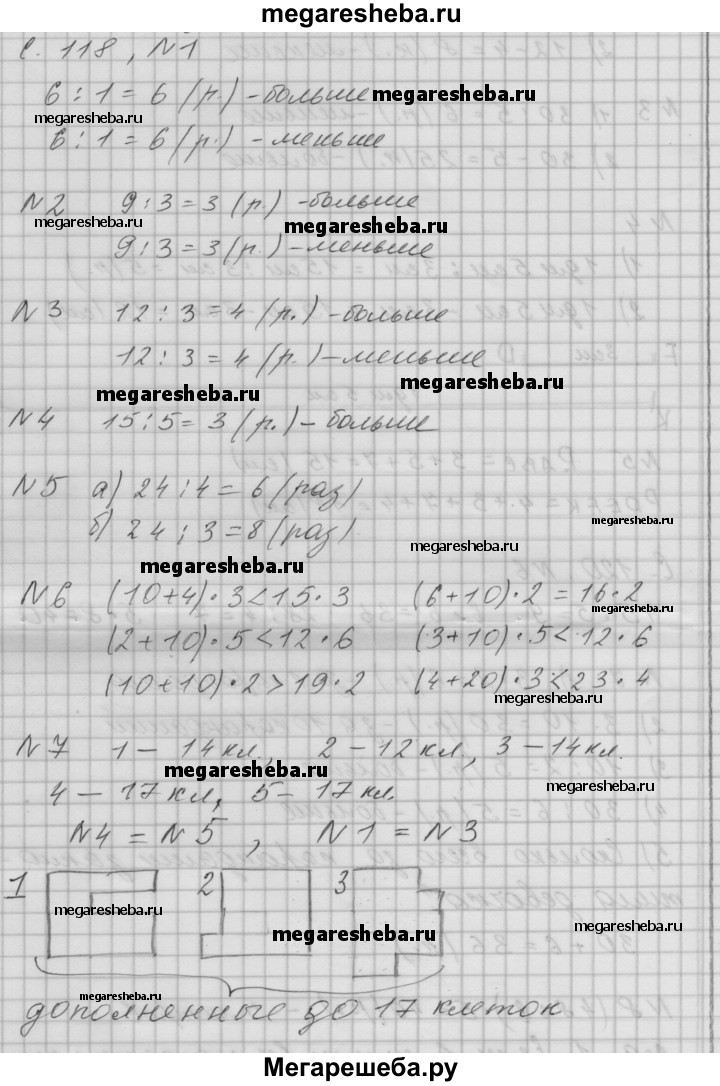 megaresheba.ru
с. 118, №1
6 : 1 = 6 (р.) - больше megaresheba.ru
megaresheba.ru
6 : 1 = 6 (р.) - меньше
megaresheba.ru
№2 9 : 3 = 3 (р.) - больше
megaresheba.ru megaresheba.ru
9 : 3 = 3 (р.) - меньше
№3 12 : 3 = 4 (р.) - больше
12 : 3 = 4 (р.) - меньше
megaresheba.ru megaresheba.ru
№4 15 : 5 = 3 (р.) - больше
№5 а) 24 : 4 = 6 (раз)
б) 24 : 3 = 8 (раз)
megaresheba.ru
megaresheba.ru megaresheba.ru
№6 (10+4) · 3 < 15 · 3 (6+10) · 2 = 16 · 2
megaresheba.ru
(2+10) · 5 < 12 · 6 (3+10) · 5 < 12 · 6
(10+10) · 2 > 19 · 2 (4+20) · 3 < 23 · 4
megaresheba.ru
№7 1 - 14 кл, 2 - 12 кл, 3 - 14 кл.
megaresheba.ru megaresheba.ru
4 - 17 кл, 5 - 17 кл.
№4 = №5, №1 = №3
1 2 3
megaresheba.ru megaresheba.ru
megaresheba.ru
дополненные до 17 клеток
megaresheba.ru megaresheba.ru
Мегарешеба.ру